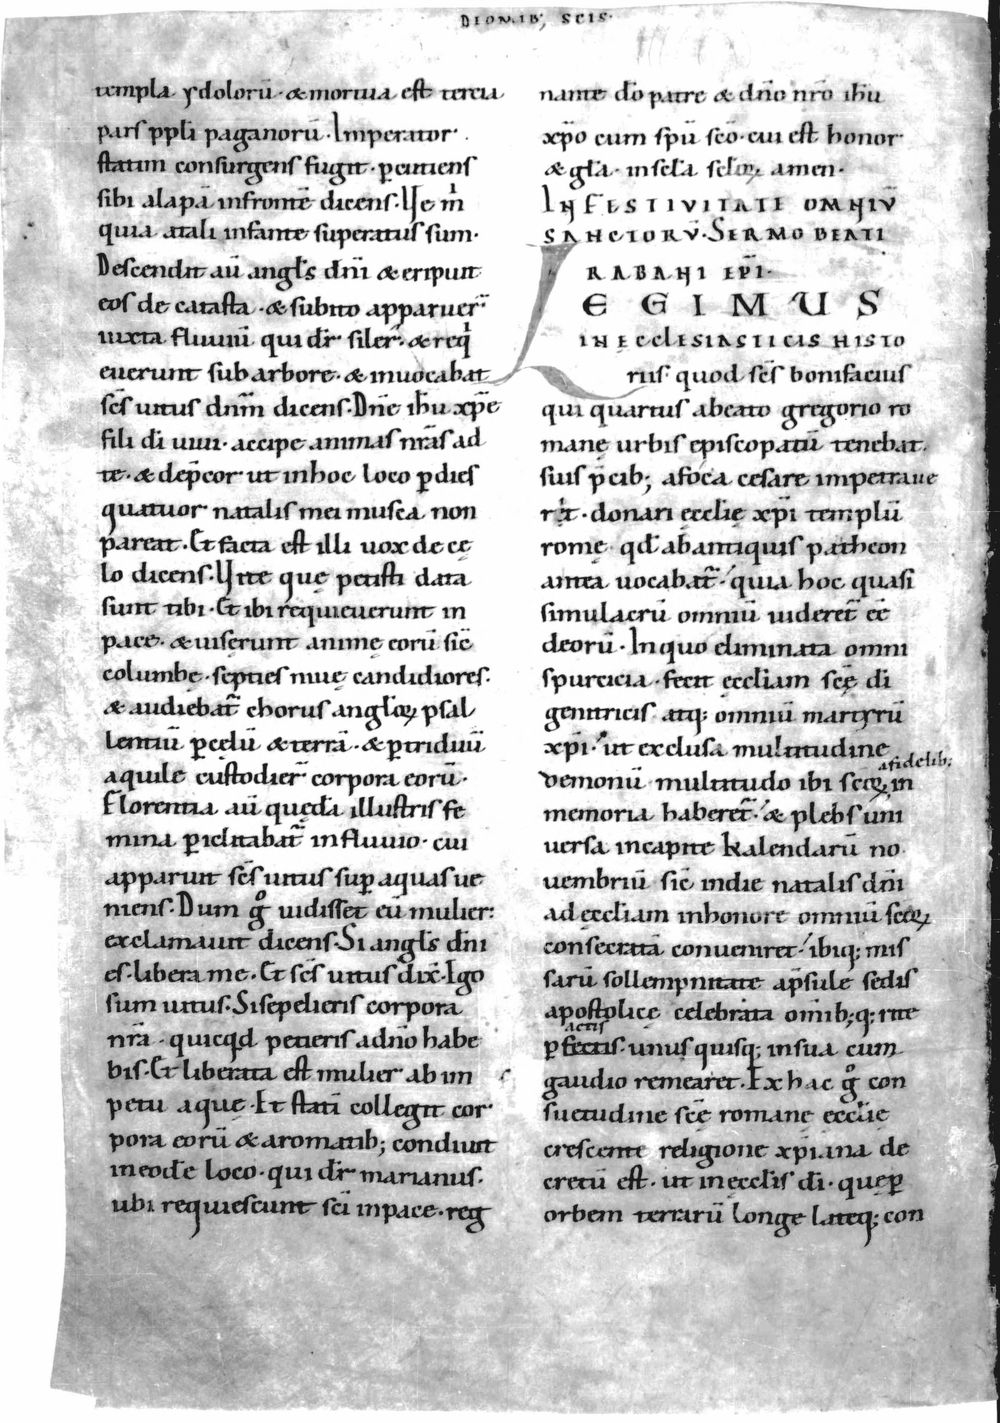 DE OMNIB; SCIS·
templa ydolorū· & mortua est tercia
pars ppli paganorū· Imperator·
statim consurgens fugit· ꝑcutiens
sibi alapā infrontē dicens· Ue m̄
quia atali infante superatus sum·
Descendit aū angls dn̄i & eripuit
eos de catasta· & subito apparuer̄
iuxta fluuiū qui dr̄ siler̄· & req̇
euerunt sub arbore· & inuocabat
sc̄s uitus dnm̄ dicens· Dn̄e ihū xp̄e
fili dī uiui· accipe animas nr̄as ad
te· & dep̄cor ut inhoc loco ꝑ dies
quatuor natalis mei musca non
pareat· Et facta est illi uox de cę
lo dicens· Uite quę petisti data
sunt tibi· Et ibi requieuerunt in
pace· & uiserunt animę eorū sic̄
columbę· septies niuę candidiores·
& audiebat̄ chorus angloꝝ psal
lentiū ꝑ cęlū & terrā· & ꝑ triduū
aquile custodier̄ corpora eorū·
Florentia aū quędā illustris fe
mina ꝑiclitabat̄ influuio· cui
apparuit sc̄s uitus suꝑ aquas ue
niens· Dum gͦ uidisset eū mulier:
exclamauit dicens· Si angls dn̄i
es· libera me· Et sc̄s uitus dix̄· Ego
sum uitus· Sisepelieris corpora
nr̄a· quicqd petieris adn̄o habe
bis· Et liberata est mulier ab im
petu aquę· Et statī collegit cor
pora eorū & aromatib; condiuit
ineodē loco· qui dr̄ marianus·
ubi requiescunt sc̄i inpace· reg
nante dō patre & dn̄o nr̄o ihū
xp̄o cum sp̄ū sc̄o· cui est honor
& glā· inscla scl̄oꝝ amen·
IN FESTIVITATE OMNIV̄
SANCTORV̄· SERMO BEATI
RABANI EP̄I·
LEGIMUS
IN ECCLESIASTICIS HISTO
riis· quod sc̄s bonifacius
qui quartus abeato gregorio ro
manę urbis episcopatū tenebat·
suis p̄cib; afóca cesare impetraue
rit· donari ęcclię xp̄i templū
romę· qd̄ abantiquis patheon
antea uocabat̄· quia hoc quasi
simulacrū omniū uideret̄ ēē
deorū· Inquo eliminata omni
spurcicia· fecit ęccliam scę̄ dī
genitricis· atq; omniū martyrū
xp̄i· ut exclusa multitudine
afidelib;
demonū multitudo ibi sc̄oꝝ in
memoria haberet̄· & plebs uni
uersa incapite kalendarū no
uembriū sic̄ indie natalis dn̄i
ad ęccliam inhonore omniū sc̄oꝝ
consecratā conueniret· ibiq; mis
sarū sollempnitate ap̄sule sedis
apostolicę celebrata omīb;q; rite
actis
ꝑfectis· unusquisq; insua cum
gaudio remearet· Ex hac gͦ con
suetudine sc̄ę romanę ęcclię
crescente religione xp̄iana de
cretū est· ut inęccl̄is dī· quęꝑ
orbem terrarū longe lateq; con